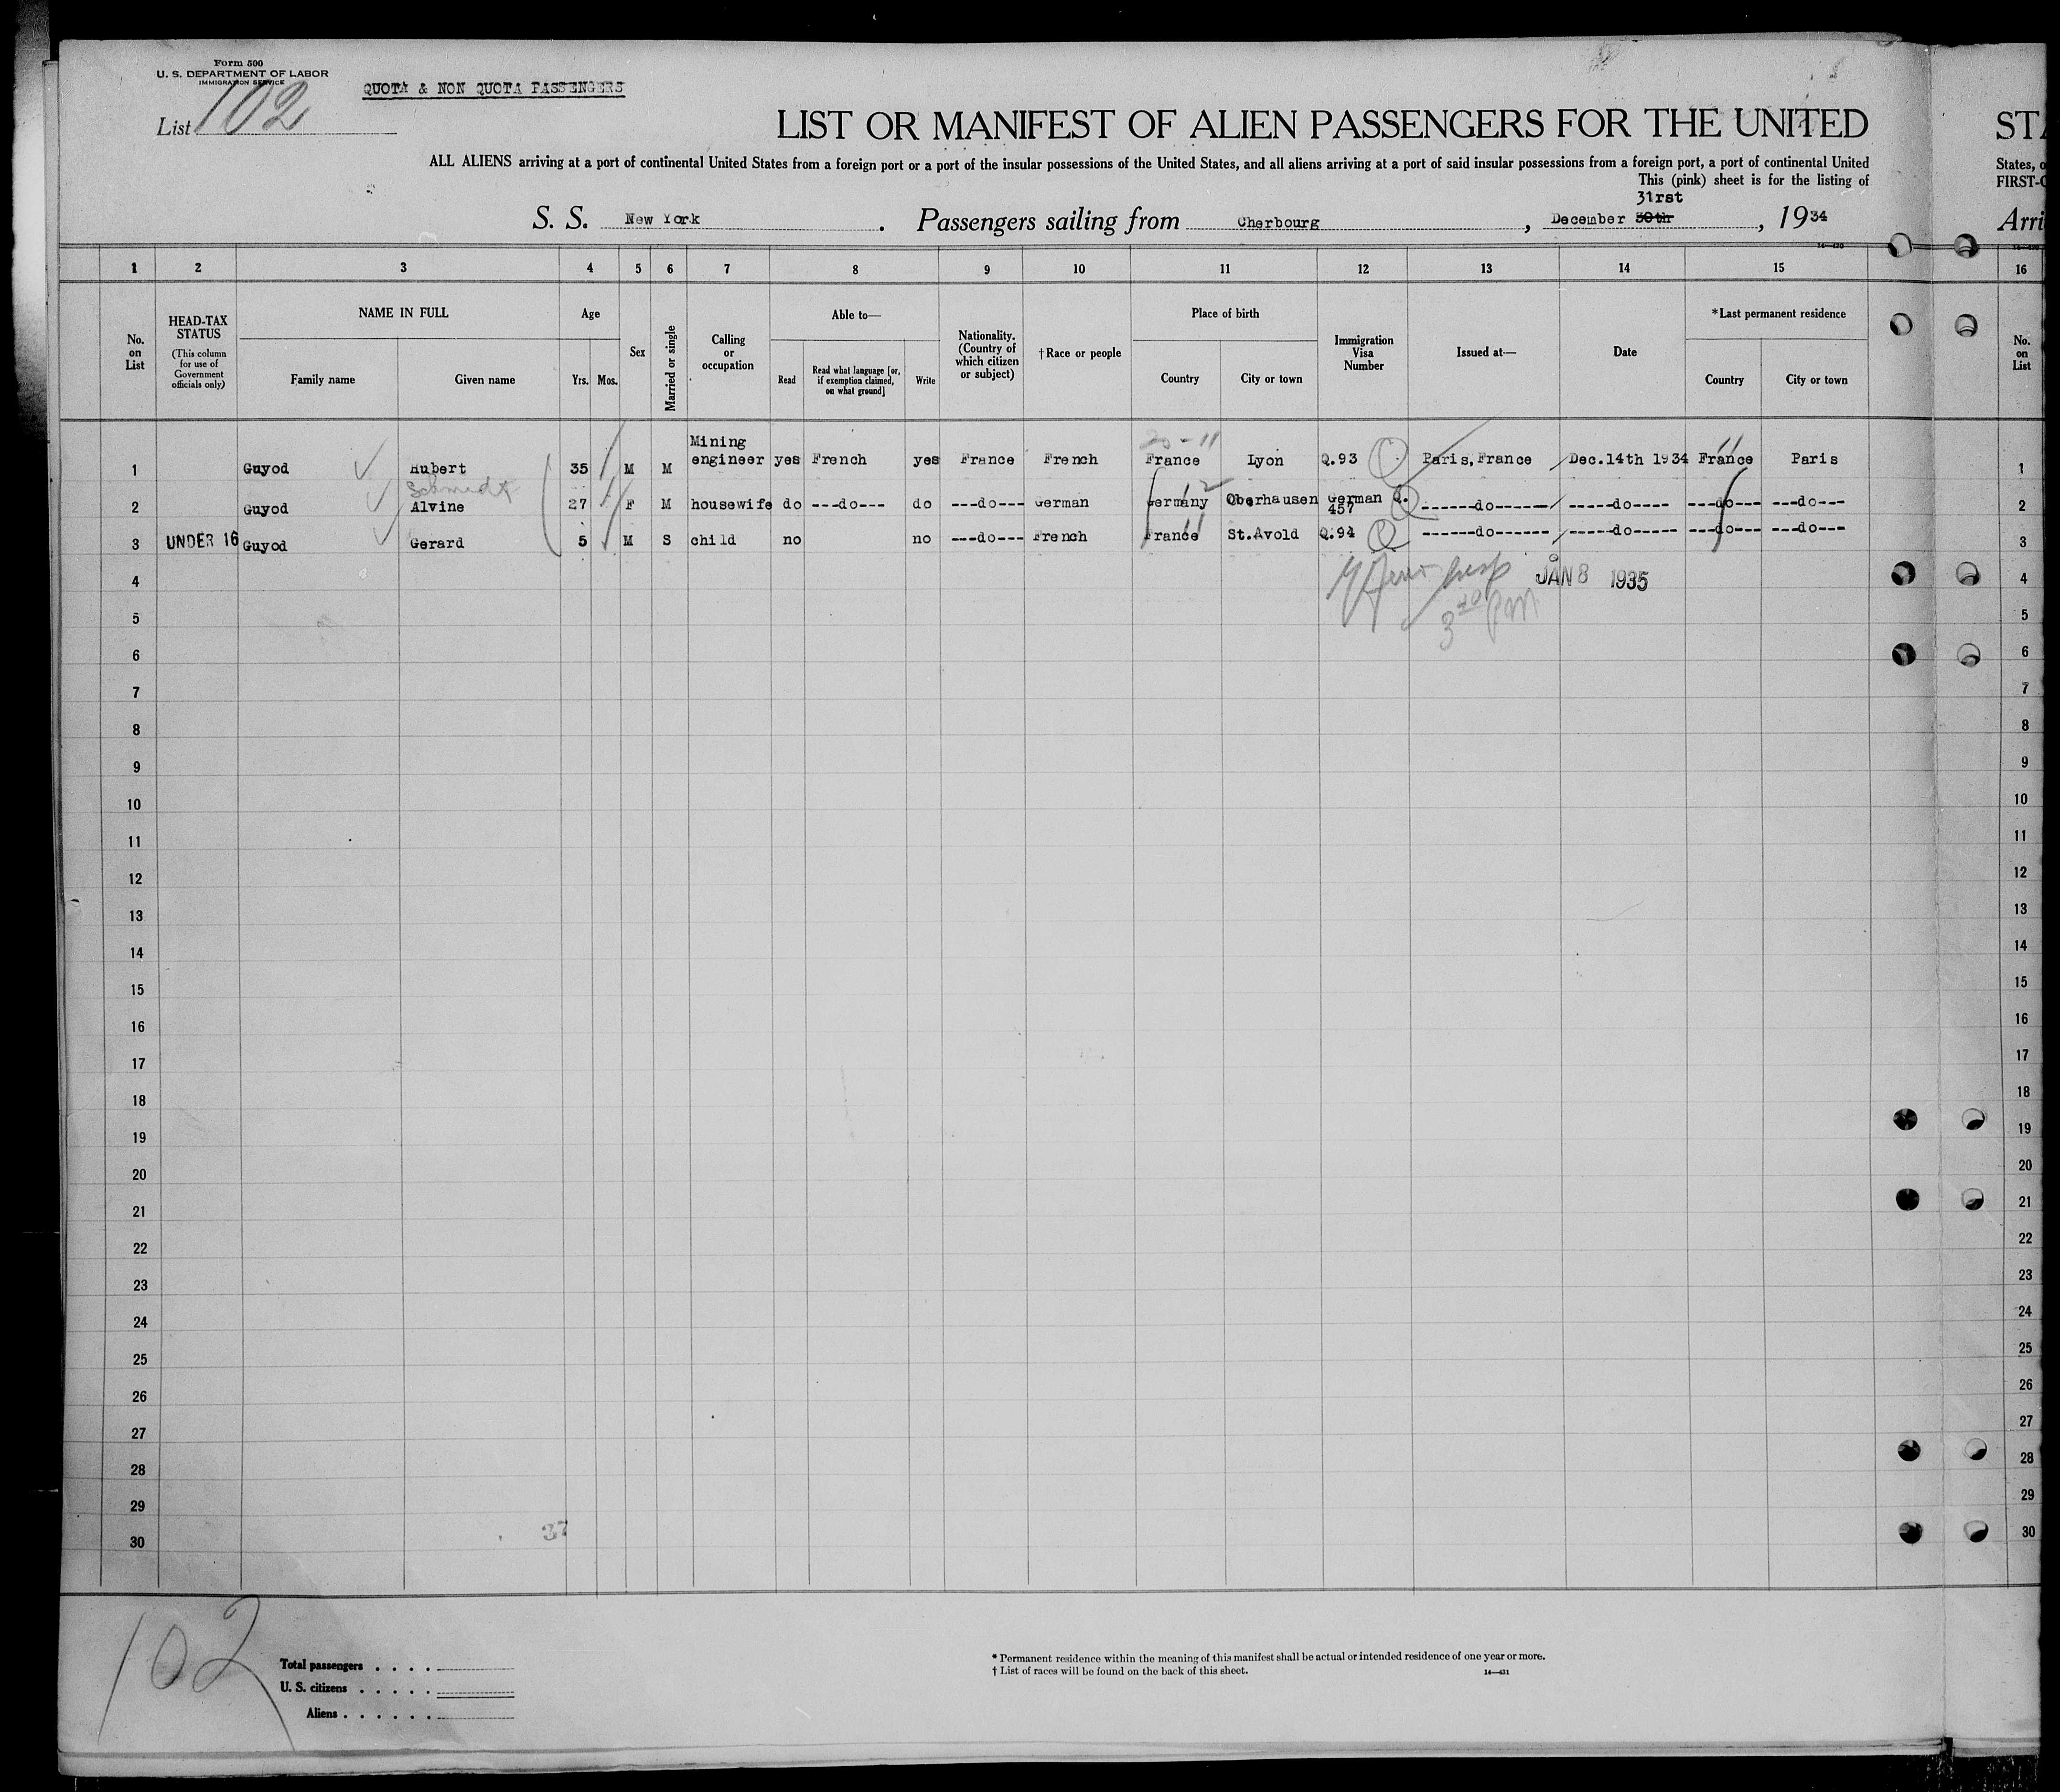 Form 500
U. S. DEPARTMENT OF LABOR
IMMIGRATION SERVICE
QUOTA & NON QUOTA PASSENGERS
List 102
LIST OR MANIFEST OF ALIEN PASSENGERS FOR THE UNITED
ALL ALIENS arriving at a port of continental United States from a foreign port or a port of the insular possessions of the United States, and all aliens arriving at a port of said insular possessions from a foreign port, a port of continental United
This (pink) sheet is for the listing of
31rst
S. S. New York. Passengers sailing from Cherbourg, December 30th, 1934
STA
States, o
FIRST-C
Arri
1 2 3 4 5 6 7 8 9 10 11 12 13 14 15 16
No. on List
HEAD-TAX STATUS
(This column for use of Government officials only)
NAME IN FULL
Family name Given name
Age
Yrs. Mos.
Sex
Married or single
Calling or occupation
Able to—
Read
Read what language [or, if exemption claimed, on what ground]
Write
Nationality. (Country of which citizen or subject)
†Race or people
Place of birth
Country City or town
Immigration Visa Number
Issued at—
Date
*Last permanent residence
Country City or town
No. on List
20-11
1 Guyod Hubert 35 M M Mining engineer yes French yes France French France Lyon Q.93 Paris, France Dec.14th 1934 France Paris 1
Schmidt
2 Guyod Alvine 27 F M housewife do ---do--- do ---do--- German Germany Oberhausen German Q. 457 ------do------ -----do---- ---do--- ---do--- 2
3 UNDER 16 Guyod Gerard 5 M S child no no ---do--- French France St.Avold Q.94 ------do------ -----do----- ---do--- ---do--- 3
4 JAN 8 1935 4
5 3 PM 5
6 6
7 7
8 8
9 9
10 10
11 11
12 12
13 13
14 14
15 15
16 16
17 17
18 18
19 19
20 20
21 21
22 22
23 23
24 24
25 25
26 26
27 27
28 28
29 29
30 30
37
102
Total passengers . . . .
U. S. citizens . . . . .
Aliens . . . . . .
* Permanent residence within the meaning of this manifest shall be actual or intended residence of one year or more.
† List of races will be found on the back of this sheet.
14—431